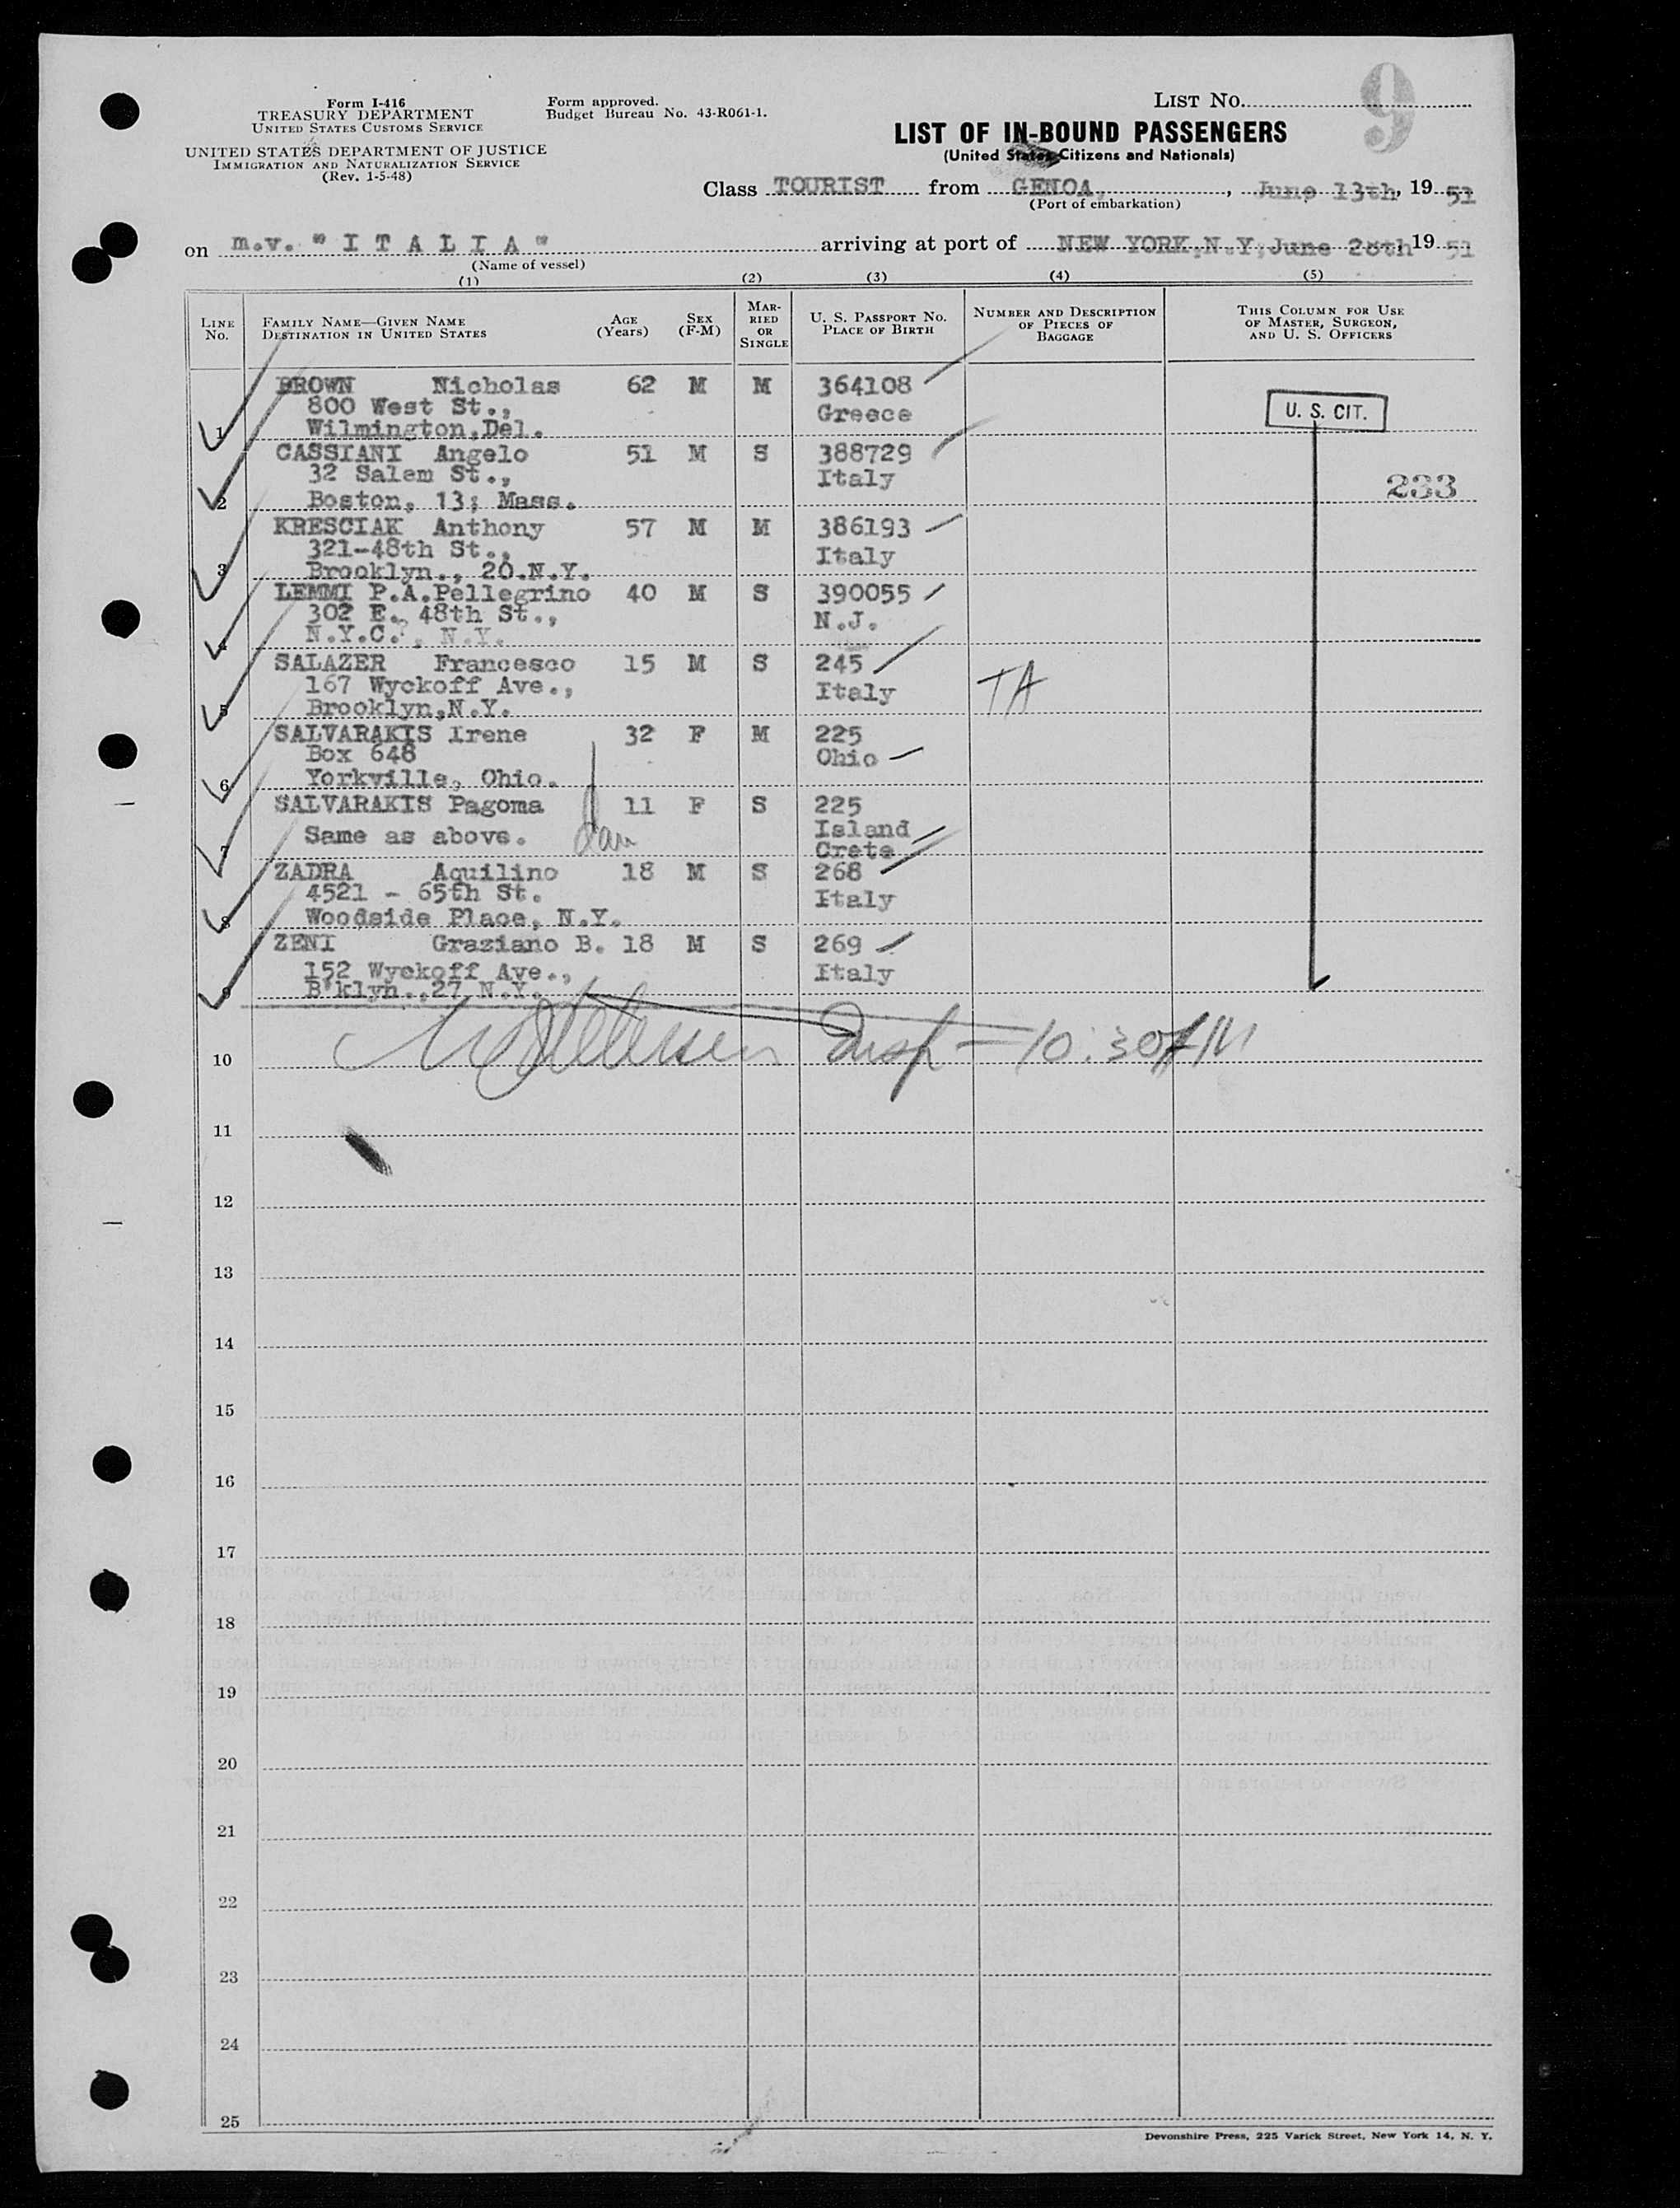 Form I-416
TREASURY DEPARTMENT
UNITED STATES CUSTOMS SERVICE
UNITED STATES DEPARTMENT OF JUSTICE
IMMIGRATION AND NATURALIZATION SERVICE
(Rev. 1-5-48)
Form approved.
Budget Bureau No. 43-R061-1.
LIST No. 9
LIST OF IN-BOUND PASSENGERS
(United States Citizens and Nationals)
Class TOURIST from GENOA, , June 13th, 19 51
(Port of embarkation)
on m.v. "I T A L I A" arriving at port of NEW YORK,N.Y, June 28th 19 51
(Name of vessel)
(1) (2) (3) (4) (5)
LINE No. FAMILY NAME—GIVEN NAME DESTINATION IN UNITED STATES AGE (Years) SEX (F-M) MARRIED OR SINGLE U. S. PASSPORT No. PLACE OF BIRTH NUMBER AND DESCRIPTION OF PIECES OF BAGGAGE THIS COLUMN FOR USE OF MASTER, SURGEON, AND U. S. OFFICERS
BROWN Nicholas 62 M M 364108
800 West St., Greece U. S. CIT.
1 Wilmington,Del.
CASSIANI Angelo 51 M S 388729
32 Salem St., Italy
233
2 Boston, 13; Mass.
KRESCIAK Anthony 57 M M 386193
321-48th St., Italy
3 Brooklyn., 20.N.Y.
LEMMI P.A.Pellegrino 40 M S 390055
302 E. 48th St., N.J.
4 N.Y.C., N.Y.
SALAZER Francesco 15 M S 245
167 Wyckoff Ave., Italy TA
5 Brooklyn,N.Y.
SALVARAKIS Irene 32 F M 225
Box 648 Ohio
6 Yorkville, Ohio.
SALVARAKIS Pagoma 11 F S 225
Same as above. dau Island
7 Crete
ZADRA Aquilino 18 M S 268
4521 - 65th St. Italy
8 Woodside Place, N.Y.
ZENI Graziano B. 18 M S 269
152 Wyckoff Ave., Italy
9 B'klyn.,27 N.Y.
Insp - 10:30AM
10
11
12
13
14
15
16
17
18
19
20
21
22
23
24
25
Devonshire Press, 225 Varick Street, New York 14, N. Y.